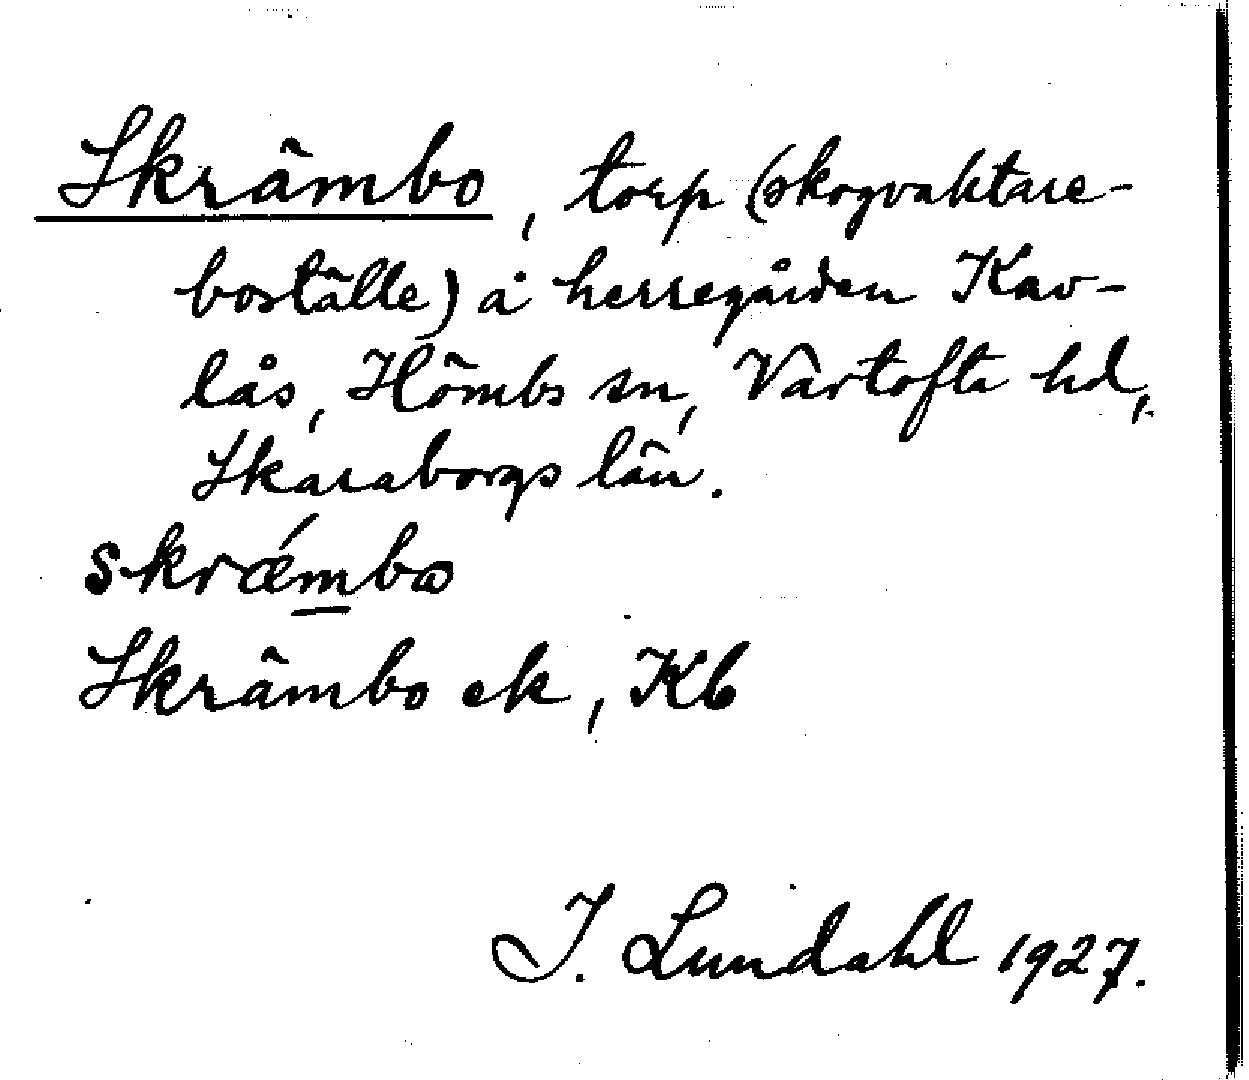 Skrämbo, torp (skogvaktare-
boställe) å herregården Kav-
lås, Hömbs sn, Vartofta hd,
Skaraborgs län.
skrǽmbω
Skrämbo ek, Kb
I. Lundahl 1927.